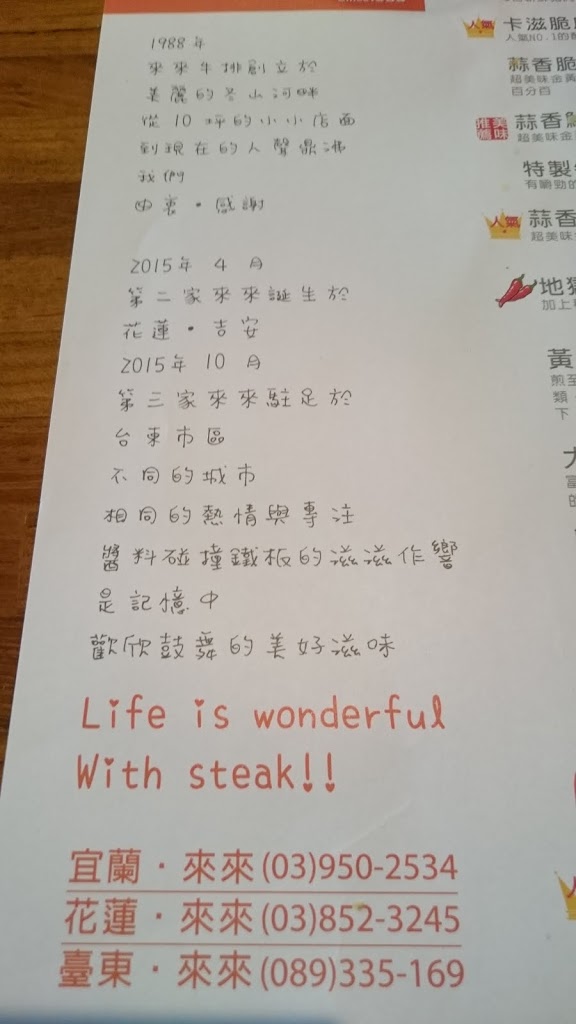 1988年
來來牛排創立於
美麗的冬山河畔
從10坪的小小店面
到現在的人聲鼎沸
我們
由衷・感謝
2015年 4 月
第二家來來誕生於
花蓮・吉安
2015年 10 月
第三家來來駐足於
台東市區
不同的城市
相同的熱情與專注
醬料碰撞鐵板的滋滋作響
是記憶中
歡欣鼓舞的美好滋味
Life is wonderful
With steak!!
宜蘭・來來(03)950-2534
花蓮・來來(03)852-3245
臺東・來來(089)335-169
人氣
卡滋脆
人氣NO.1的
蒜香脆
超美味金黃
百分百
推薦美味
蒜香
超美味金
特製
有嚼勁的
人氣
蒜香
超美味
地獄
加上
黃
煎至
類、
下
富
的